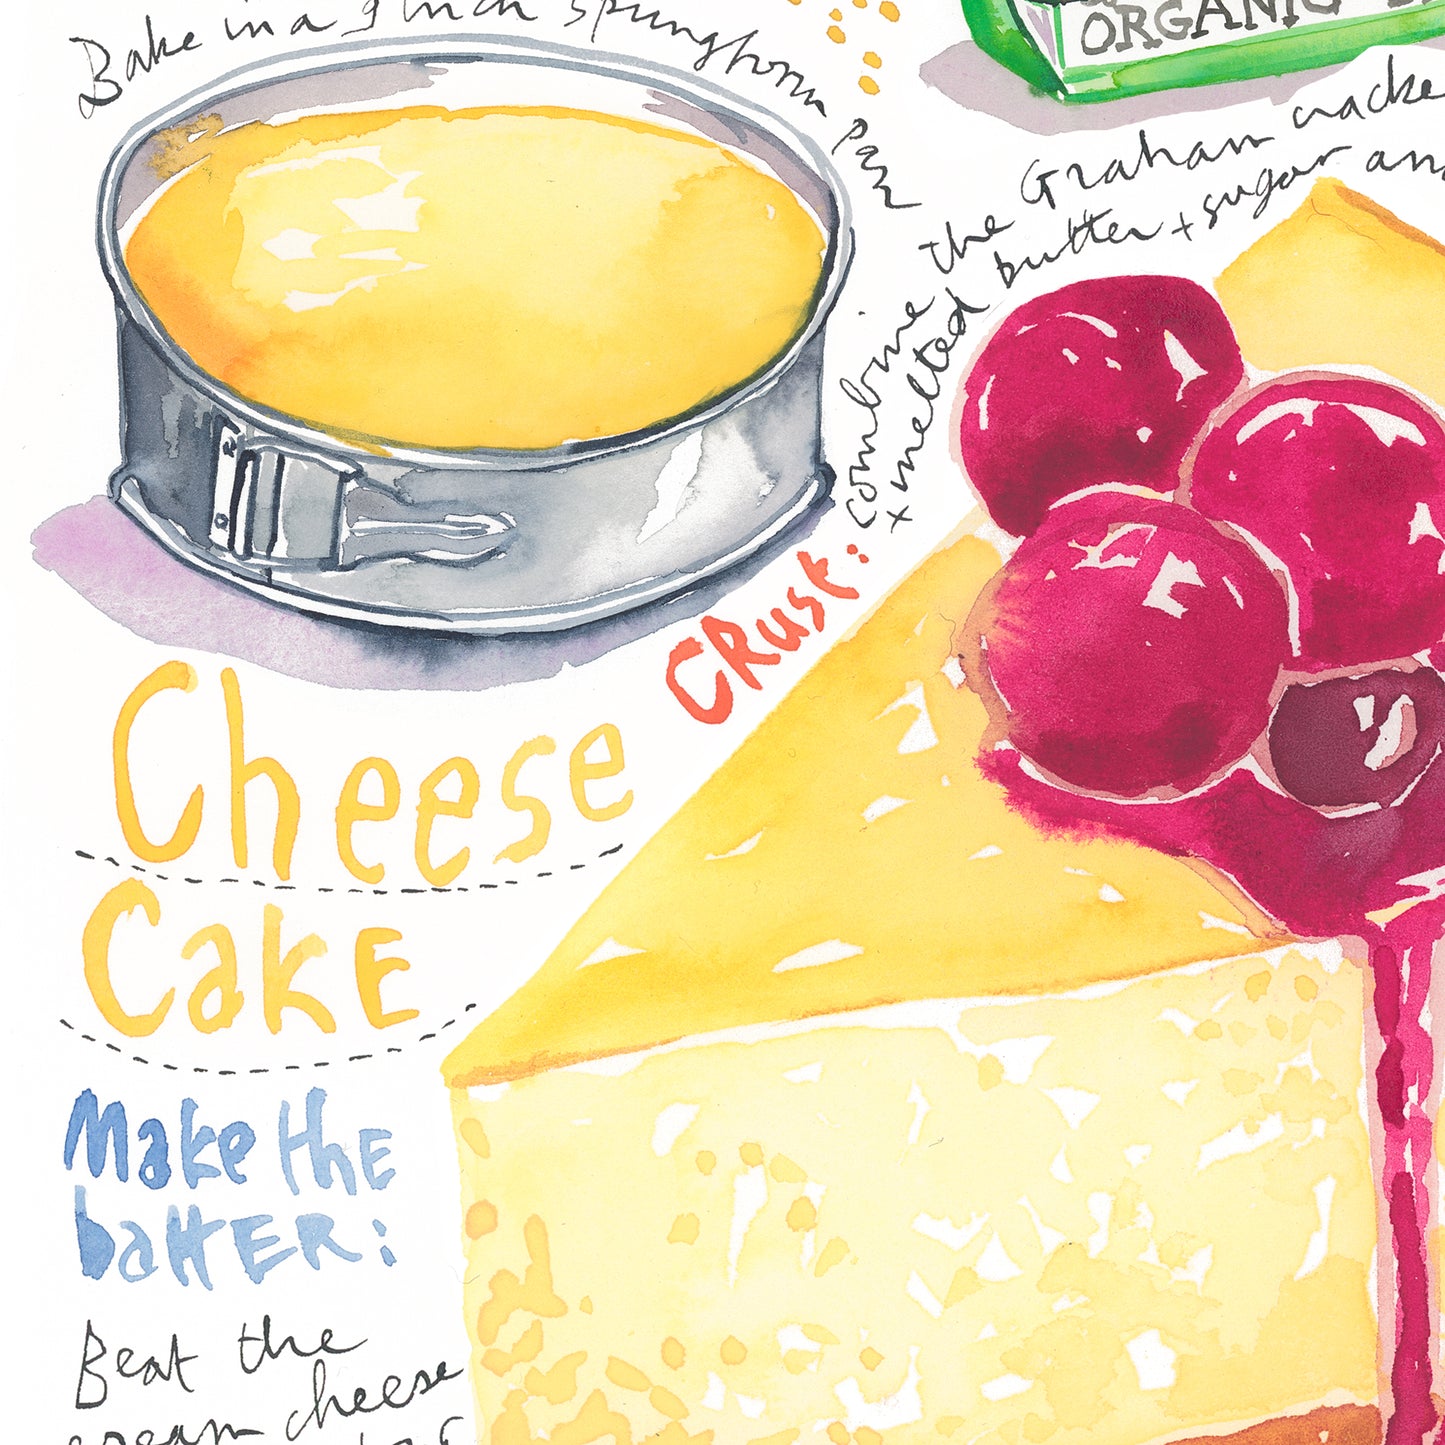 Bake in a 9 inch springform pan
ORGANIC
combine the Graham cracke
+ melted butter + sugar and
CRust:
Cheese
Cake
Make the
batter:
Beat the
cream cheese